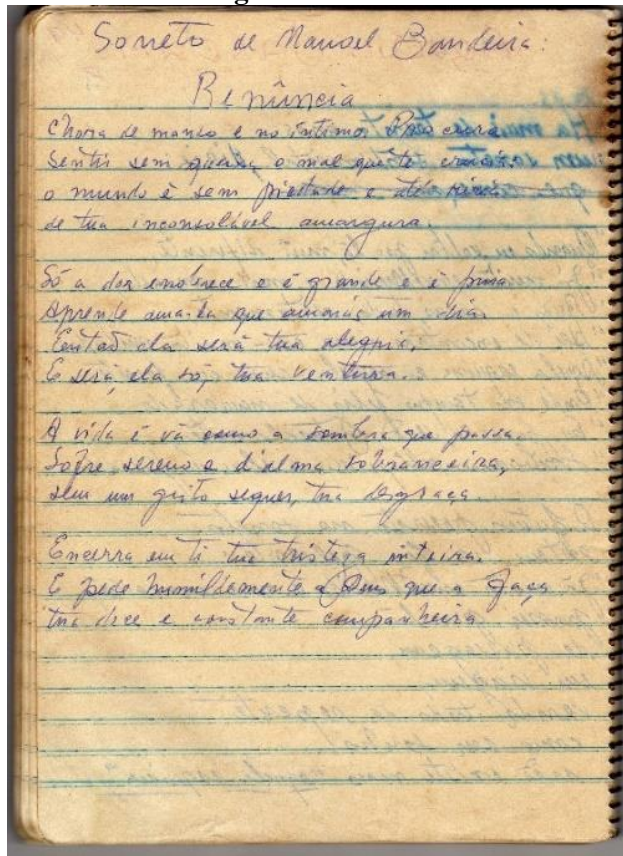 Soneto de Manoel Bandeira:
Renúncia
Chora de manso e no íntimo.
Sentir sem queixa o mal que te
o mundo é sem piedade e até
de tua inconsolável amargura.
Só a dor enobrece e é grande e é pura
Aprende ama-la que amarás um dia
Então ela será tua alegria,
E será, ela só, tua ventura.
A vida é vã como a sombra que passa.
Sofre sereno e d'alma sobranceira,
sem um grito sequer, tua desgraça.
Encerra em ti tua tristeza inteira.
E pede humildemente a Deus que a faça
tua doce e constante companheira